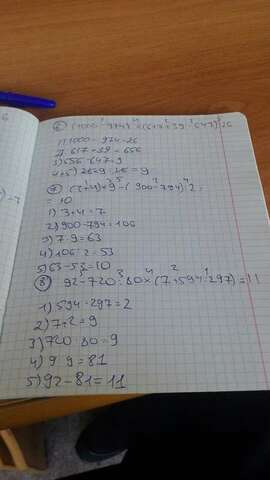 6) (1000 - 974) × (617 + 39 - 647) : 26
1) 1000 - 974 = 26
2) 617 + 39 = 656
3) 656 - 647 = 9
4) + 5) 26 · 9 : 26 = 9
7) (3+4) · 9 - (900 - 794) : 2 =
= 10
1) 3+4 = 7
2) 900 - 794 = 106
3) 7 · 9 = 63
4) 106 : 2 = 53
5) 63 - 53 = 10
8) 92 - 720 : 80 × (7 + 594 : 297) = 11
1) 594 : 297 = 2
2) 7+2 = 9
3) 720 : 80 = 9
4) 9 · 9 = 81
5) 92 - 81 = 11